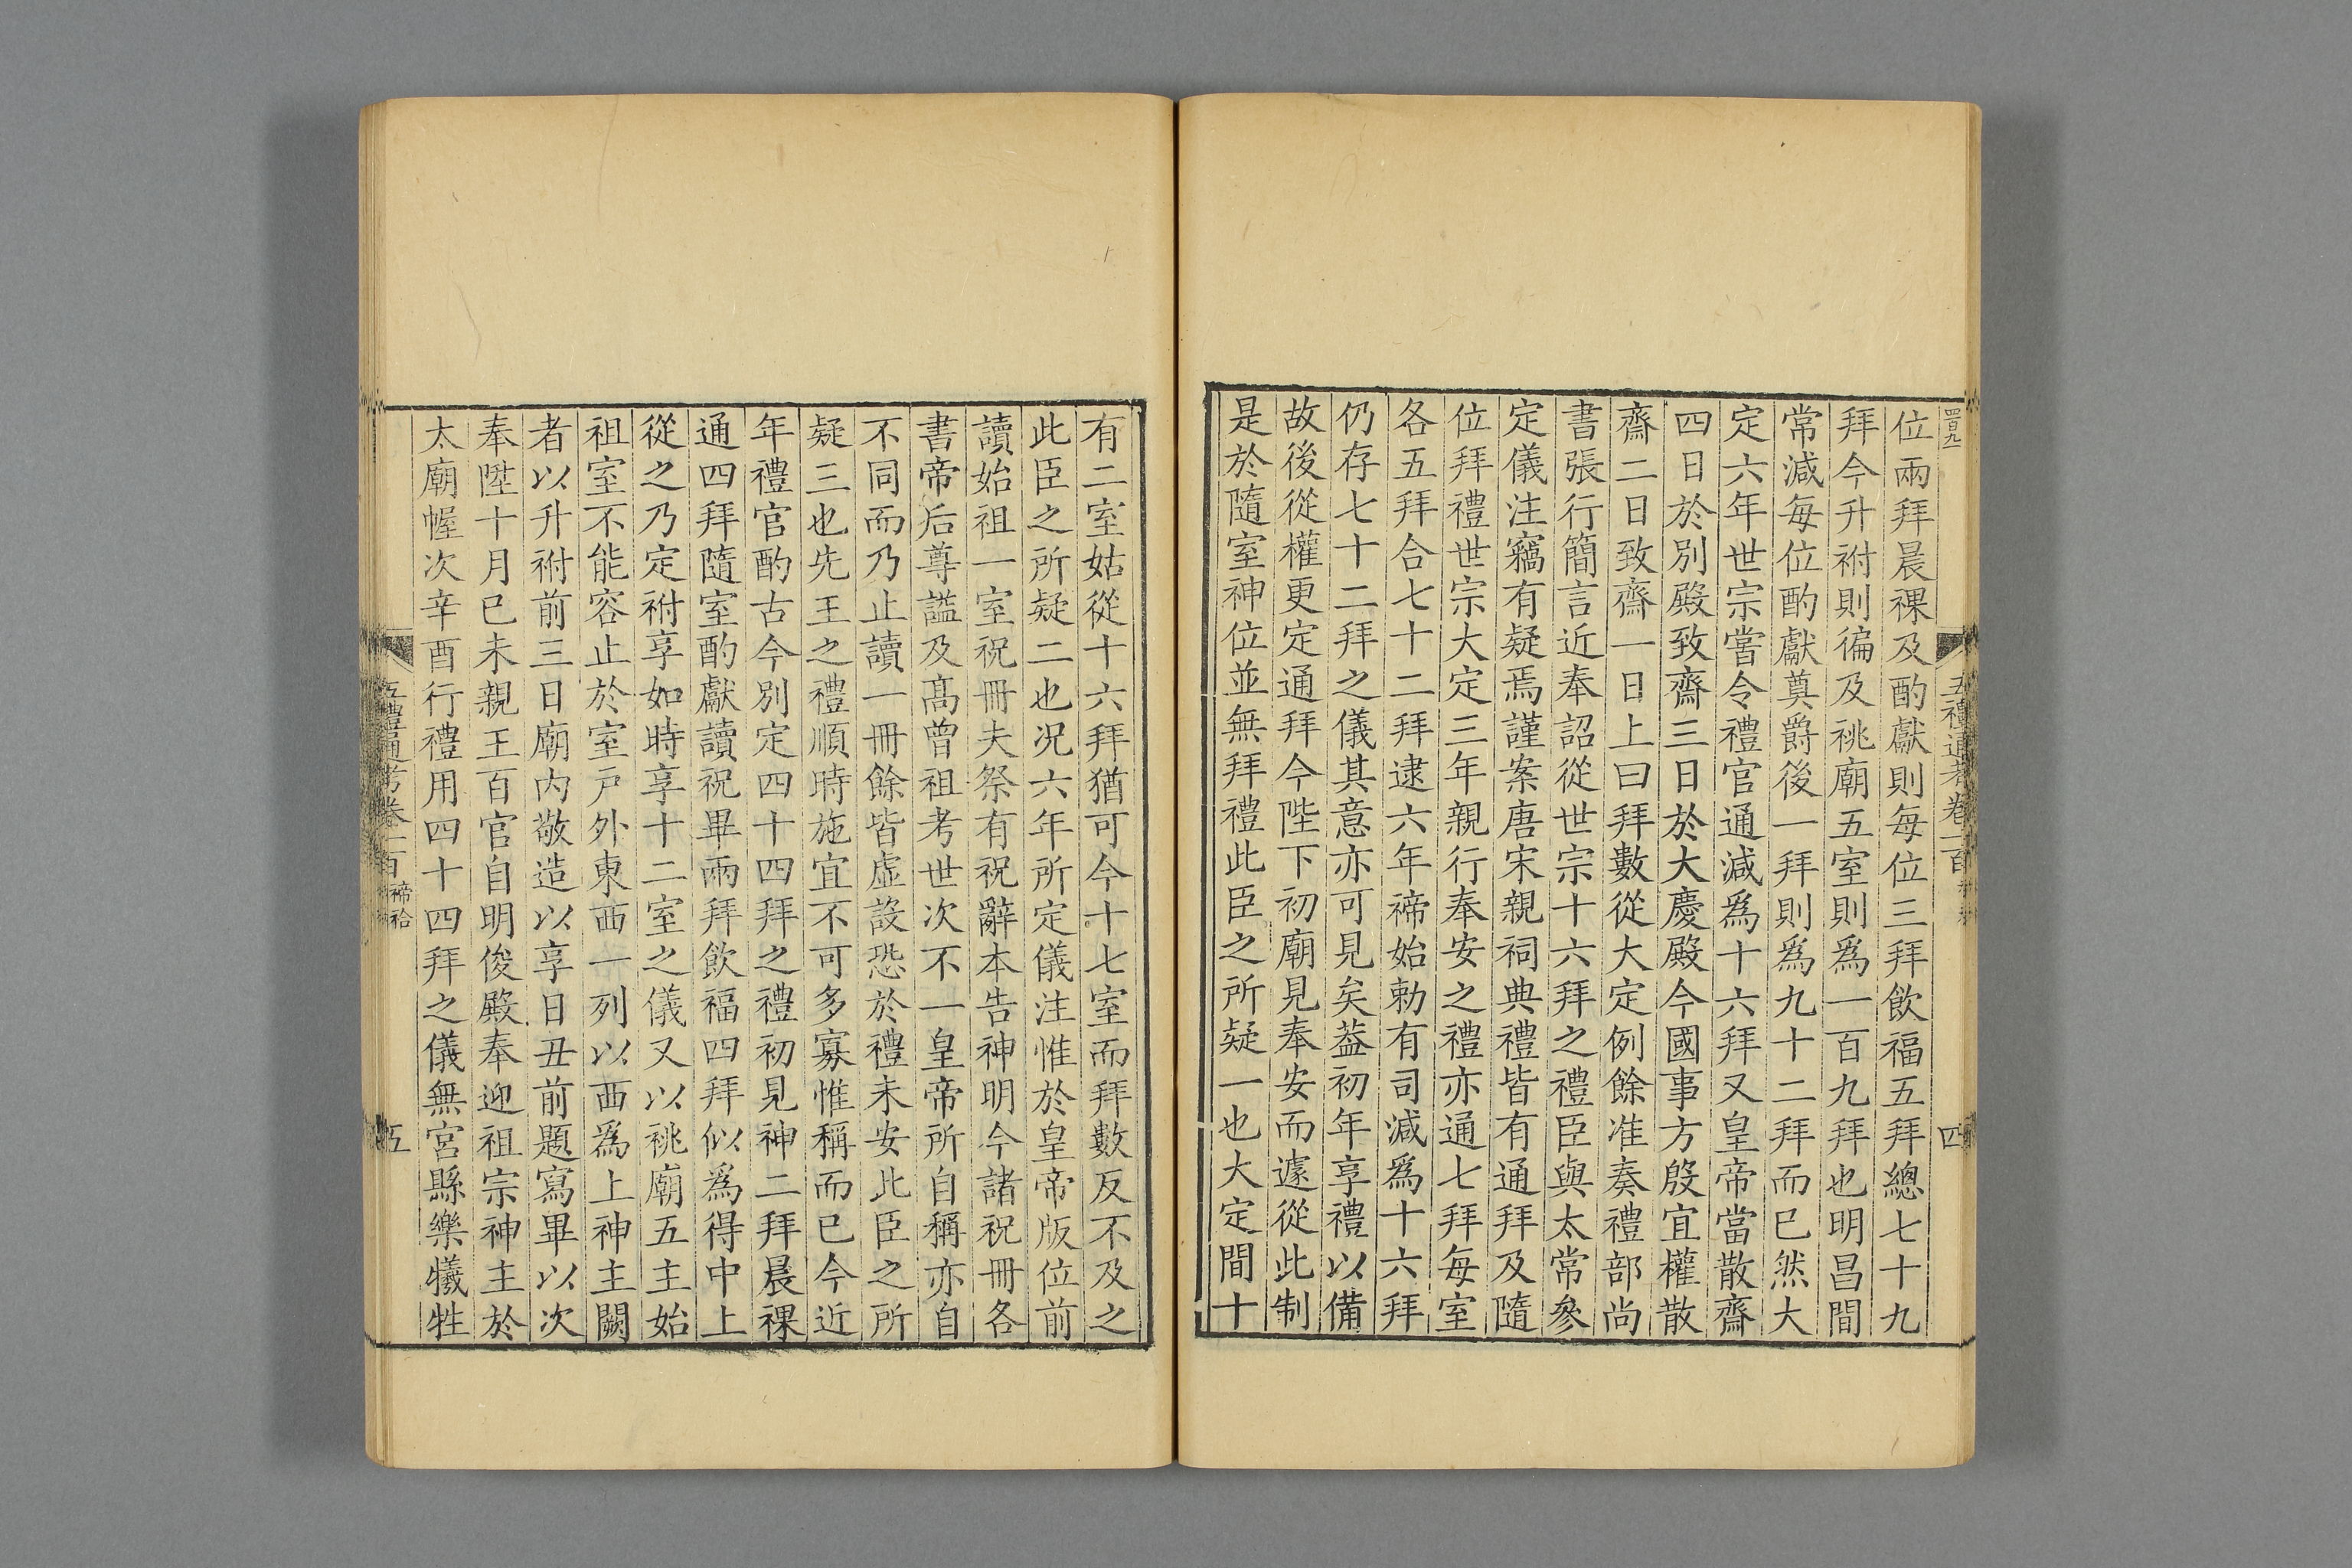 五禮通考卷一百
四
位兩拜晨祼及酌獻則每位三拜飲福五拜總七十九
拜今升祔則徧及祧廟五室則爲一百九拜也明昌間
常減每位酌獻奠爵後一拜則爲九十二拜而已然大
定六年世宗嘗令禮官通減爲十六拜又皇帝當散齋
四日於別殿致齋三日於大慶殿今國事方殷宜權散
齋二日致齋一日上曰拜數從大定例餘准奏禮部尚
書張行簡言近奉詔從世宗十六拜之禮臣與太常參
定儀注竊有疑焉謹案唐宋親祠典禮皆有通拜及隨
位拜禮世宗大定三年親行奉安之禮亦通七拜每室
各五拜合七十二拜逮六年禘始勅有司減爲十六拜
仍存七十二拜之儀其意亦可見矣葢初年享禮以備
故後從權更定通拜今陛下初廟見奉安而遽從此制
是於隨室神位並無拜禮此臣之所疑一也大定間十
有二室姑從十六拜猶可今十七室而拜數反不及之
此臣之所疑二也况六年所定儀注惟於皇帝版位前
讀始祖一室祝冊夫祭有祝辭本告神明今諸祝冊各
書帝后尊謚及高曾祖考世次不一皇帝所自稱亦自
不同而乃止讀一冊餘皆虛設恐於禮未安此臣之所
疑三也先王之禮順時施宜不可多寡惟稱而已今近
年禮官酌古今別定四十四拜之禮初見神二拜晨祼
通四拜隨室酌獻讀祝畢兩拜飲福四拜似爲得中上
從之乃定祔享如時享十二室之儀又以祧廟五主始
祖室不能容止於室戶外東西一列以西爲上神主闕
者以升祔前三日廟內敬造以享日丑前題寫畢以次
奉陞十月已未親王百官自明俊殿奉迎祖宗神主於
太廟幄次辛酉行禮用四十四拜之儀無宮縣樂犧牲
五禮通考卷一百
禘祫
五